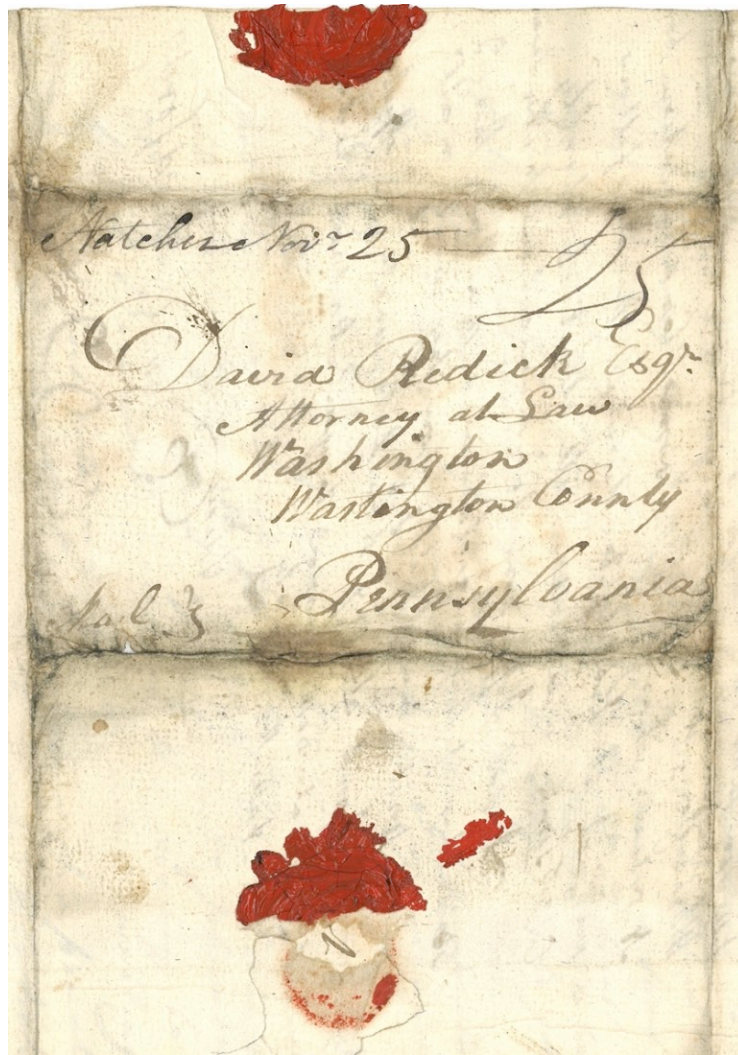 Natchez Novr 25 25
David Redick Esqr
Attorney at Law
Washington
Wastington County
Pennsylvania